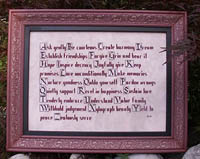 Ask gently Be courteous Create harmony Dream
Establish friendships Forgive Grin and bear it
Hope Inspire decency Joyfully give Keep
promises Love unconditionally Make memories
Nurture goodness Outdo yourself Pardon wrongs
Quietly support Rest in happiness Smile
Tenderly embrace Understand Value family
Withhold judgement heartily Yield to
peace Zealously serve